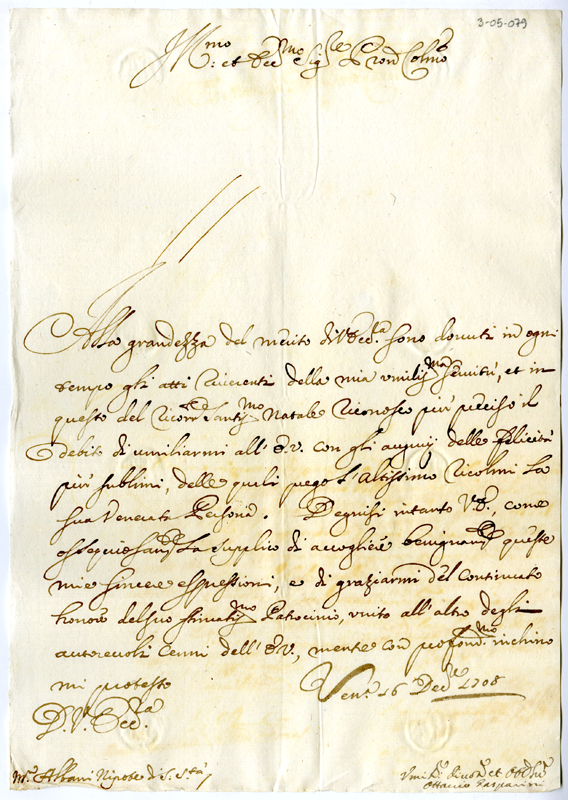 3-05-079
Ill:mo et Ecc:mo Sig:re Pron Colmo
Alla grandezza del merito di V. Ecc.za sono dovuti in ogni
tempo gli atti riverenti della mia umilis:ma servitù, et in
questo del ricorr.te Santis:mo Natale riconosco più preciso il
debito di umiliarmi all'E.V. con gli augurij delle felicità
più sublimi, delle quali prego l'Altissimo ricolmi la
sua Venerata Persona. Degnisi intanto V.E., come
ossequiosam.te la supplico di accogliere benignam.te queste
mie sincere espressioni, e di graziarmi del continuato
honore del suo stimatis:mo Patrocinio, unito all'altro degli
autorevoli cenni dell'E.V., mentre con profond:mo inchino
mi protesto
Ven.a 16 Dec.re 1708
D. V. Ecc.za
M.r Albani Nipote di S. S.tà
Umil.o Divot.o et Obb.mo
Ottavio Gasparini